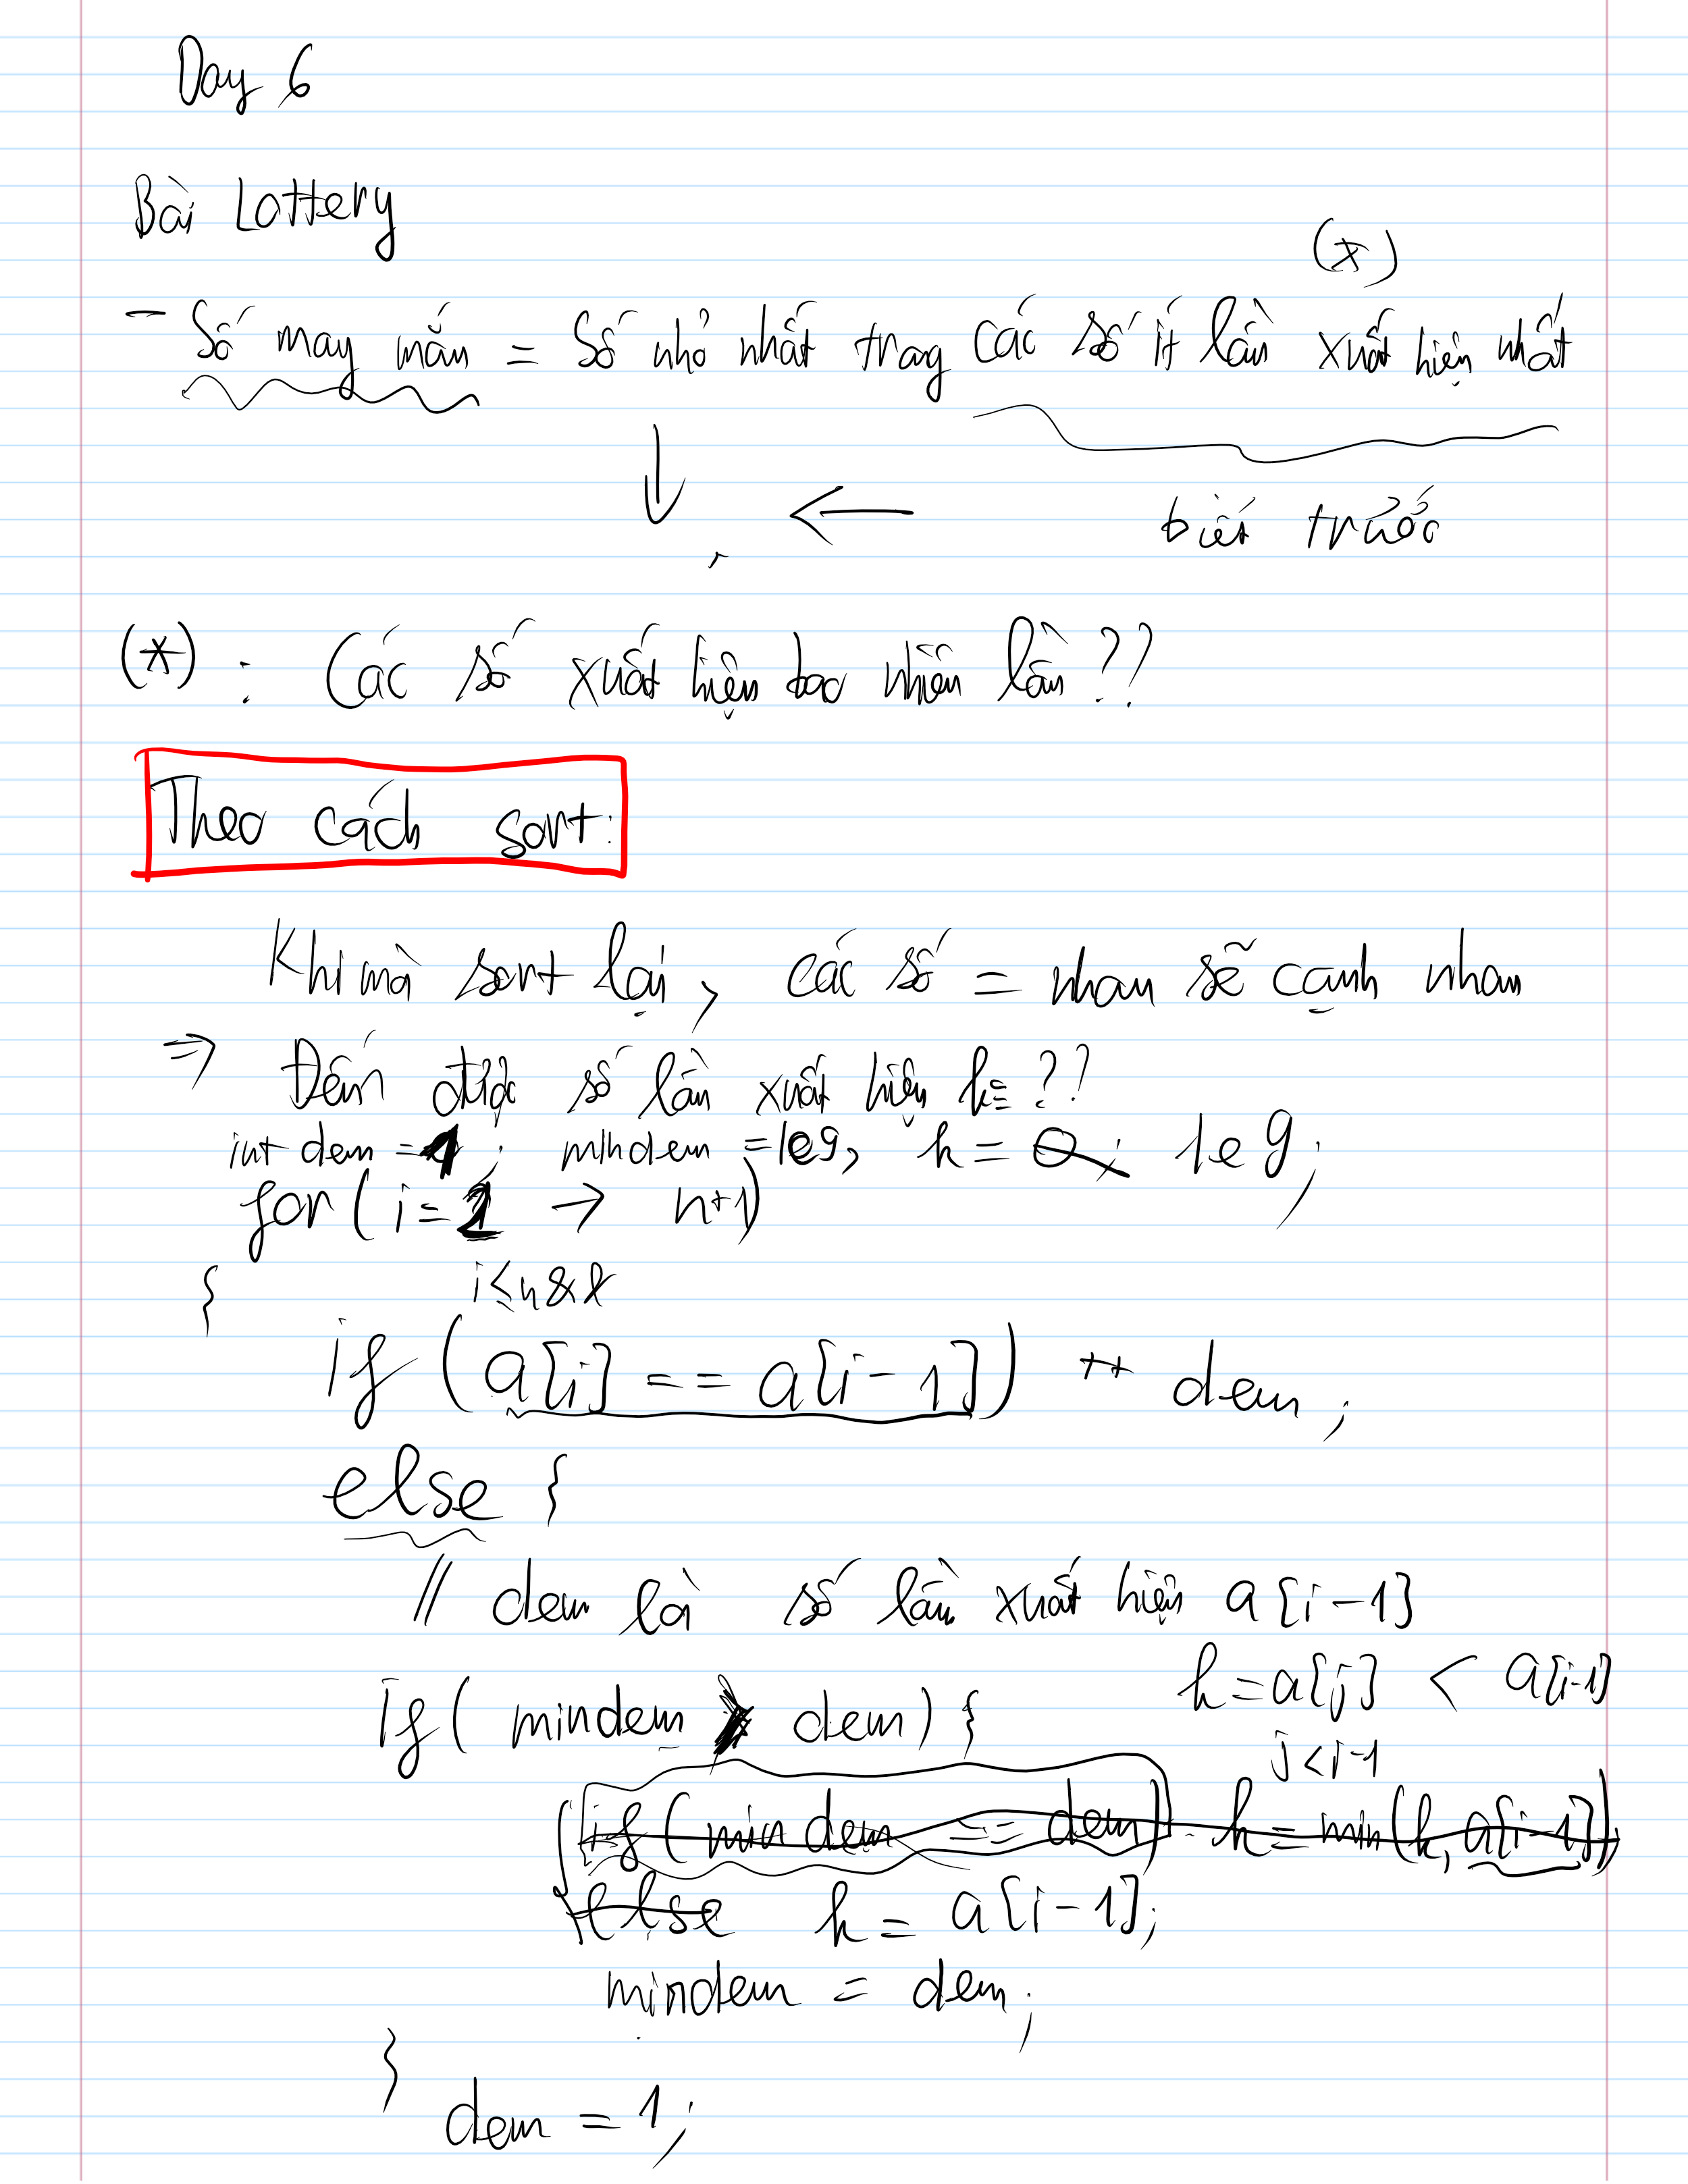 Day 6
Bài Lottery
(*)
- Số may mắn = Số nhỏ nhất trong các số ít lần xuất hiện nhất
biết trước
(*) : Các số xuất hiện bao nhiêu lần ??
Theo cách sort:
Khi mà sort lại, các số = nhau sẽ cạnh nhau
⇒ Đếm được số lần xuất hiện k = ??
int dem = 1; mindem = 1e9, k = 0; 1e9;
for (i = 2 → n+1)
{
i ≤ n &&
if (a[i] == a[i-1]) ++ dem;
else {
// dem là số lần xuất hiện a[i-1]
k = a[j] < a[i-1]
if( mindem > dem) {
j < i-1
if (mindem == dem) k = min(k, a[i-1]);
else k = a[i-1];
mindem = dem;
}
dem = 1;